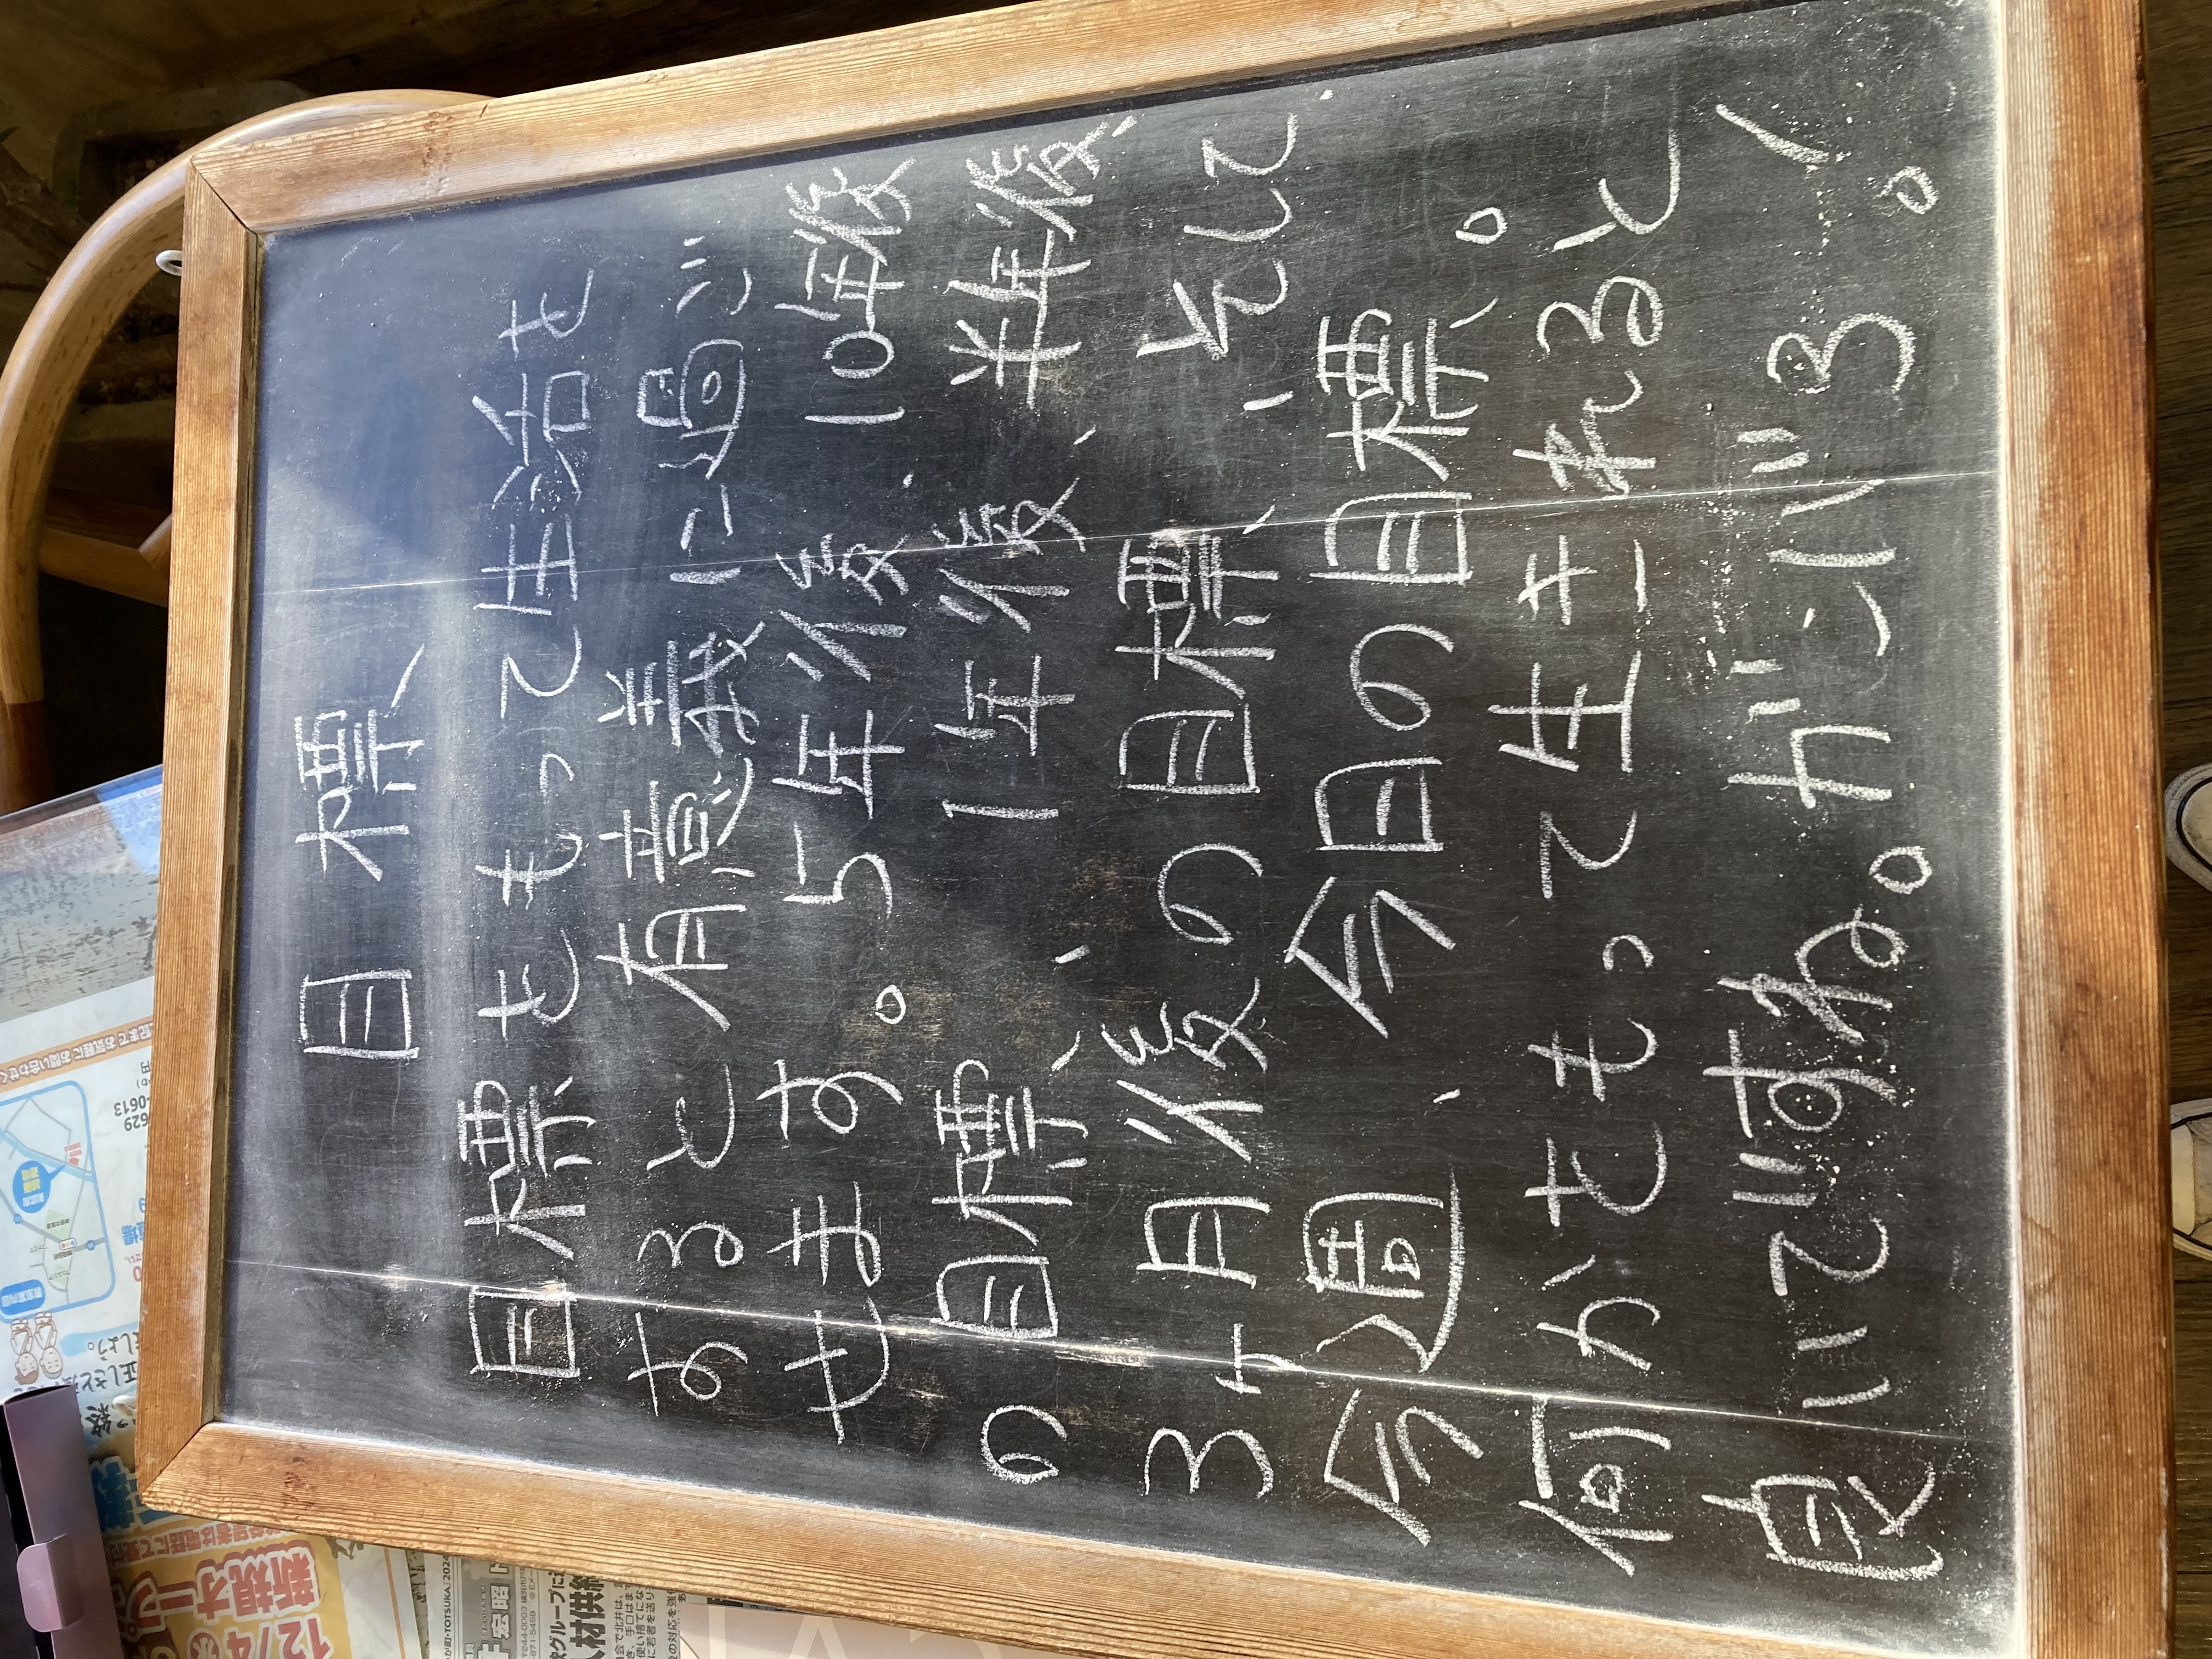 目標
目標をもって生活を
すると有意義に過ご
せます。5年後、10年後
の目標、1年後、半年後、
3ヶ月後の目標、そして
今週、今日の目標。
何かをもって生きれると
良いですね。ガンバろ!
12/4
新規オープ